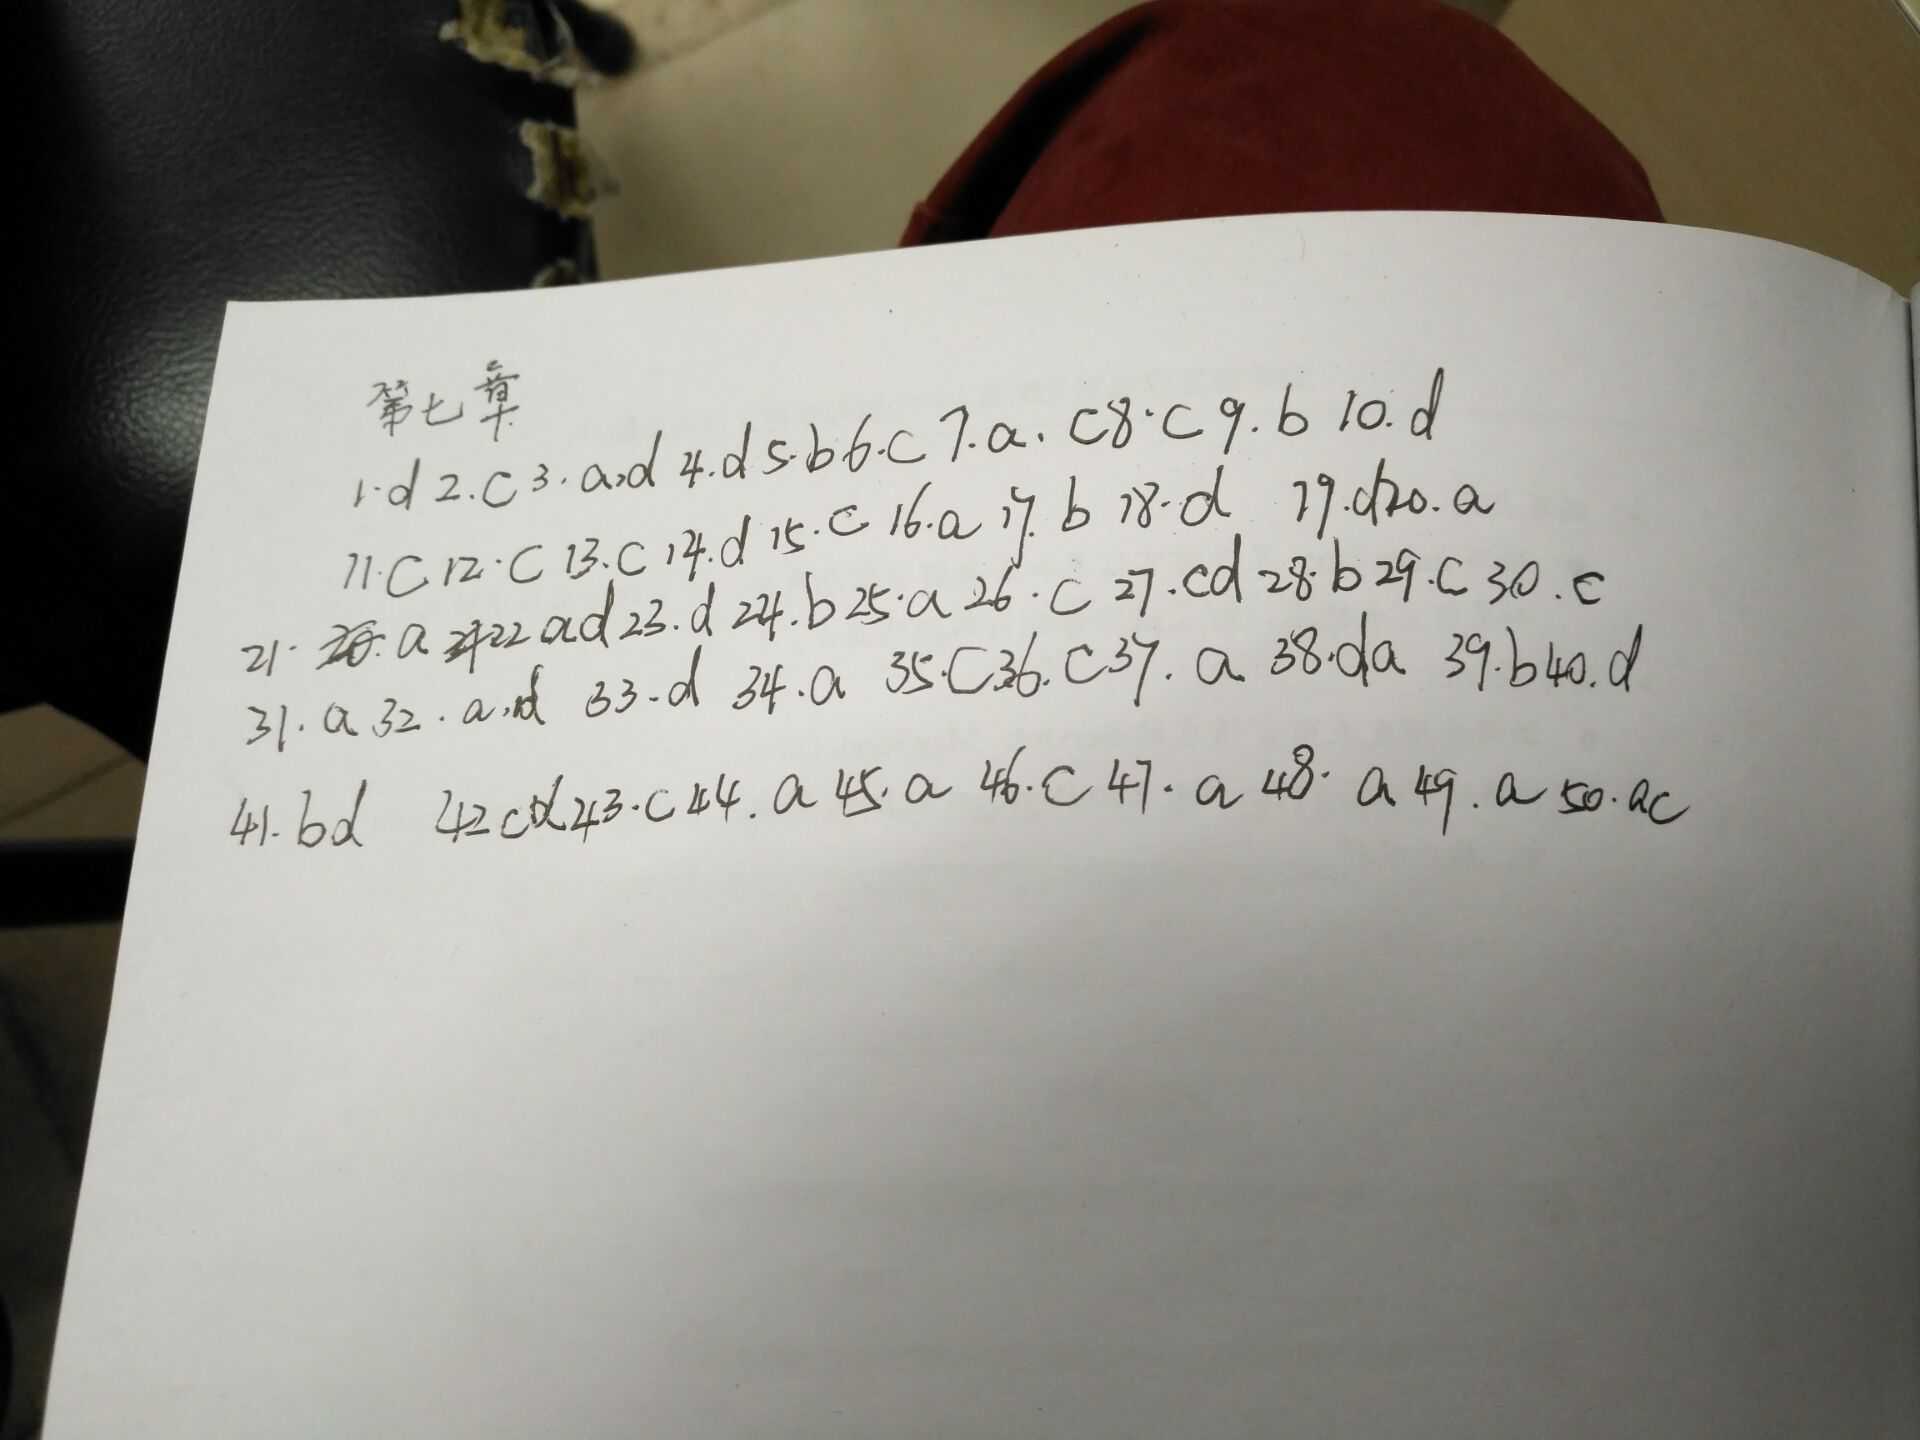 第七章
1.d 2.c 3.a,d 4.d 5.b 6.c 7.a.c 8.c 9.b 10.d
11.c 12.c 13.c 14.d 15.c 16.a 17.b 18.d 19.d 20.a
21. a 22 ad 23.d 24.b 25.a 26.c 27.cd 28.b 29.c 30.c
31.a 32.a.d 33.d 34.a 35.c 36.c 37.a 38.da 39.b 40.d
41.bd 42 cd 43.c 44.a 45.a 46.c 47.a 48.a 49.a 50.ac